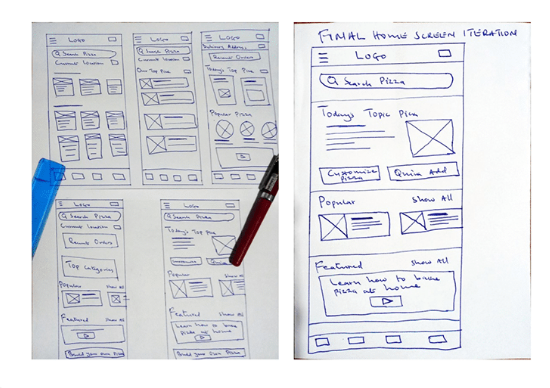 LOGO
Search Pizza
Current Location
LOGO
Search Pizza
Current Location
Our Top Pick
LOGO
Delivery Address
Recent Orders
Today's Top Pick
Popular Pizza
LOGO
Search Pizza
Current Location
Recent Orders
Top Categories
Popular Show All
Featured Show All
Build your own Pizza
LOGO
Search Pizza
Today's Top Pick
Customize
Popular Show All
Featured Show All
Learn how to bake
pizza at home
Build your own Pizza
FINAL HOME SCREEN ITERATION
LOGO
Search Pizza
Today's Topic Pick
Customize
Pizza
Quick Add
Popular Show All
Featured Show All
Learn how to bake
pizza at home